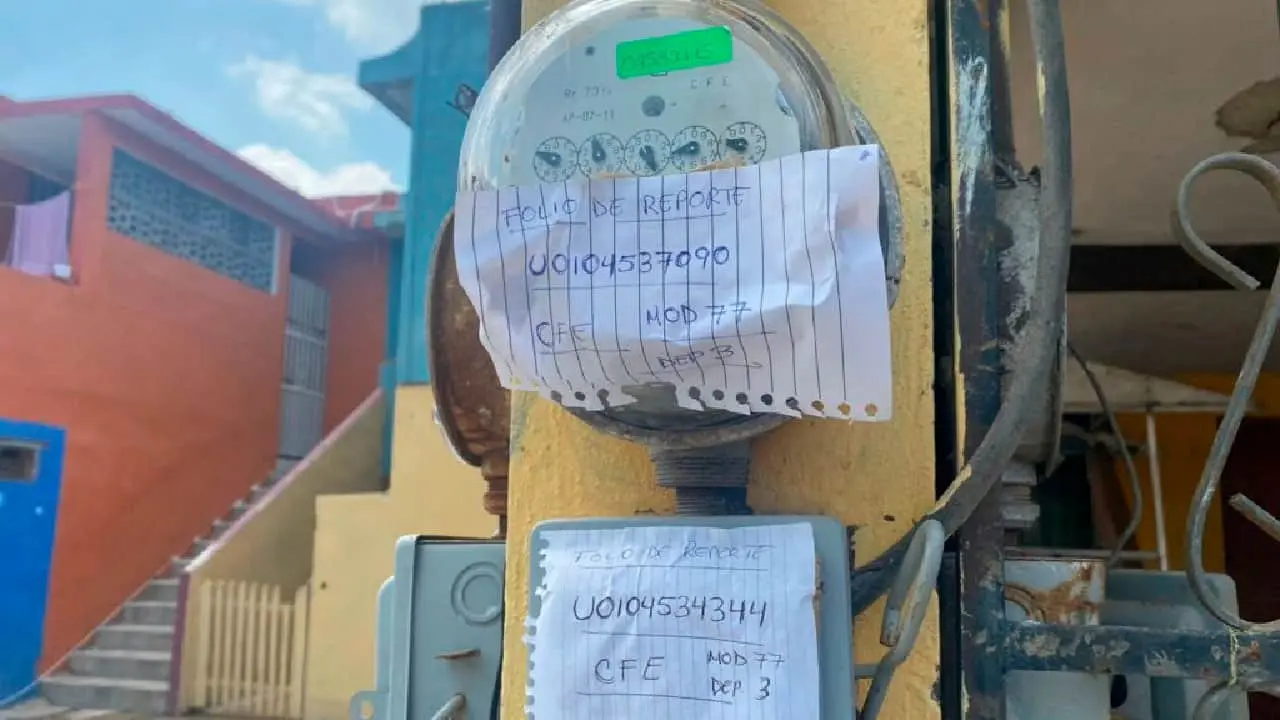 C F E
FOLIO DE REPORTE
U0104537090
CFE MOD 77
DEP 3
FOLIO DE REPORTE
U0104534344
CFE MOD 77
DEP. 3